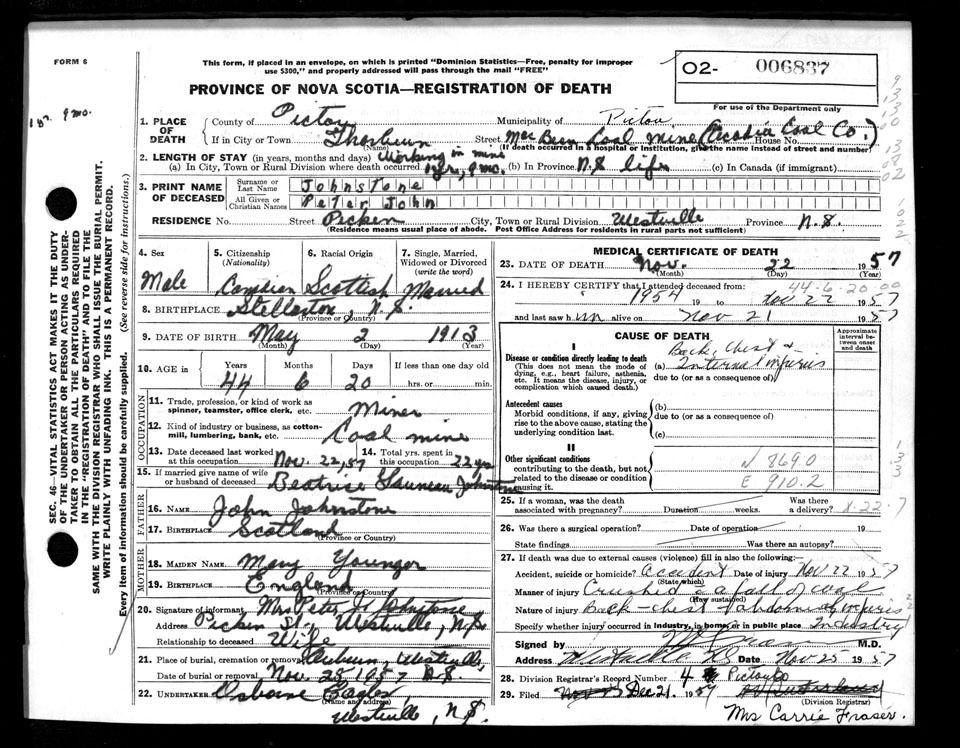 FORM 6
This form, if placed in an envelope, on which is printed "Dominion Statistics—Free, penalty for improper
use $300," and properly addressed will pass through the mail "FREE"
O2- 006837
PROVINCE OF NOVA SCOTIA—REGISTRATION OF DEATH
For use of the Department only
1 yr. 9 mo.
1. PLACE OF DEATH
County of Pictou Municipality of Pictou
If in City or Town Thorburn Street MacBean Coal Mine (Acadia Coal Co.) House No.
(Name) (If death occurred in a hospital or institution, give the name instead of street and number)
2. LENGTH OF STAY (in years, months and days) Working in mine
(a) In City, Town or Rural Division where death occurred 1 yr, 9 mo. (b) In Province N.S. life (c) In Canada (if immigrant)
3. PRINT NAME OF DECEASED
Surname or Last Name Johnstone
All Given or Christian Names Peter John
RESIDENCE No. Street Picken City, Town or Rural Division Westville Province N.S.
(Residence means usual place of abode. Post Office Address for residents in rural parts not sufficient)
SEC. 46—VITAL STATISTICS ACT MAKES IT THE DUTY
OF THE UNDERTAKER OR PERSON ACTING AS UNDER-
TAKER TO OBTAIN ALL THE PARTICULARS REQUIRED
IN THE "REGISTRATION OF DEATH" AND TO FILE THE
SAME WITH THE DIVISION REGISTRAR WHO SHALL ISSUE THE BURIAL PERMIT.
WRITE PLAINLY WITH UNFADING INK. THIS IS A PERMANENT RECORD.
Every item of information should be carefully supplied. (See reverse side for instructions.)
4. Sex
Male
5. Citizenship
(Nationality)
Canadian
6. Racial Origin
Scottish
7. Single, Married, Widowed or Divorced
(write the word)
Married
8. BIRTHPLACE Stellarton, N.S.
(Province or Country)
9. DATE OF BIRTH May 2 1913
(Month) (Day) (Year)
10. AGE in Years Months Days If less than one day old
44 6 20 hrs. or min.
OCCUPATION
11. Trade, profession, or kind of work as
spinner, teamster, office clerk, etc. Miner
12. Kind of industry or business, as cotton-
mill, lumbering, bank, etc. Coal mine
13. Date deceased last worked
at this occupation Nov. 22, 57
14. Total yrs. spent in
this occupation 22 yrs
15. If married give name of wife
or husband of deceased Beatrice Johnstone
FATHER
16. NAME John Johnstone
17. BIRTHPLACE Scotland
(Province or Country)
MOTHER
18. MAIDEN NAME Mary Younger
19. BIRTHPLACE England
(Province or Country)
20. Signature of informant Mrs Peter J Johnstone
Address Picken St., Westville, N.S.
Relationship to deceased Wife
21. Place of burial, cremation or removal Auburn, Westville,
Date of burial or removal Nov. 25 1957 N.S.
22. UNDERTAKER Osborne Eagles
(Name and address)
Westville, N.S.
MEDICAL CERTIFICATE OF DEATH
23. DATE OF DEATH Nov. 22 1957
(Month) (Day) (Year)
24. I HEREBY CERTIFY that I attended deceased from: 44-6-20-00
1954 19 to Nov 22 1957
and last saw him alive on Nov 21 1957
CAUSE OF DEATH
Approximate interval between onset and death
I
Disease or condition directly leading to death
(This does not mean the mode of
dying, e.g., heart failure, asthenia,
etc. It means the disease, injury, or
complication which caused death.)
Back, Chest &
(a) Internal injuries
due to (or as a consequence of)
Antecedent causes
Morbid conditions, if any, giving
rise to the above cause, stating the
underlying condition last.
(b)
due to (or as a consequence of)
(c)
II
Other significant conditions
contributing to the death, but not
related to the disease or condition
causing it.
N 869.0
E 910.2
25. If a woman, was the death
associated with pregnancy? Duration weeks. Was there a delivery?
X-22-7
26. Was there a surgical operation? Date of operation 19
State findings Was there an autopsy?
27. If death was due to external causes (violence) fill in also the following:—
Accident, suicide or homicide? Accident Date of injury Nov 22 1957
(State which)
Manner of injury Crushed in a fall of coal
(How sustained)
Nature of injury Back—chest & abdominal injuries
Specify whether injury occurred in industry, in home, or in public place Industry
Signed by M.D.
Address Westville NS Date Nov 25 1957
28. Division Registrar's Record Number 4 Pictou Co
29. Filed Dec 21 1957
(Division Registrar)
Mrs Carrie Fraser.